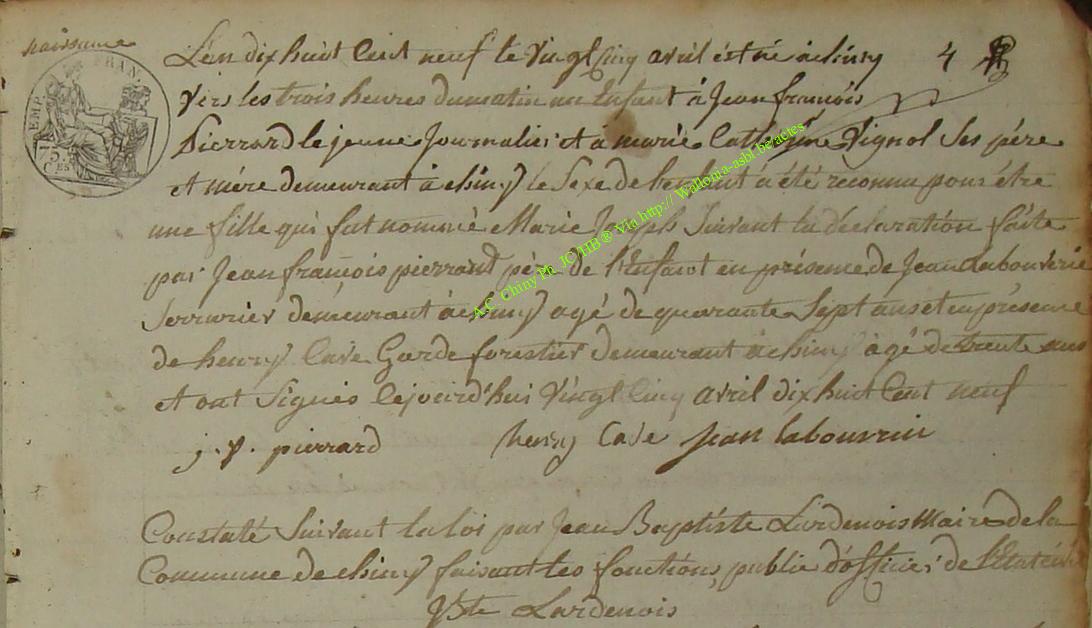 naissance
L'an dix huit Cent neuf le Vingt Cinq avril est né a chiny 4
Vers les trois heures du matin un Enfant à Jean françois
Pierrard le jeune Journalier et a marie Catherine Vignol Ses père
et mère demeurant à chiny le Sexe de l'enfant a été reconnu pour être
une fille qui fut nommée Marie Joseph Suivant la déclaration faite
par Jean françois pierrard père de l'Enfant en présence de Jean Labouverie
Serrurier demeurant à chiny agé de quarante Sept ans et en présence
de henry Cave Garde forestier demeurant a chiny agé de trente ans
et ont Signés Cejourd'hui Vingt Cinq avril dix huit Cent neuf
j. f. pierrard henry Cave Jean labouvrin
Constaté Suivant la loi par Jean Baptiste Lardenois Maire de la
Commune de chiny faisant les fonctions public d'officier de l'Etat civil
JBte Lardenois
EMP. FRAN.
5.
CES
A.C. Chiny Ph. JCHB® Via http:// Wallonia-asbl.be/actes